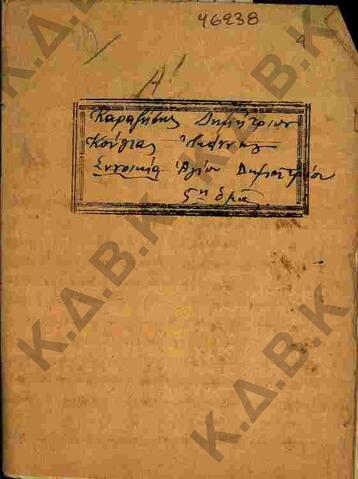 46238
4
Α'
Καραζήσης Δημήτριος
Κούγιας Ιωάννης
Συνοικία Αγίου Δημητρίου
5η ομάς
Κ.Δ.Β.Κ
Κ.Δ.Β.Κ
Κ.Δ.Β.Κ